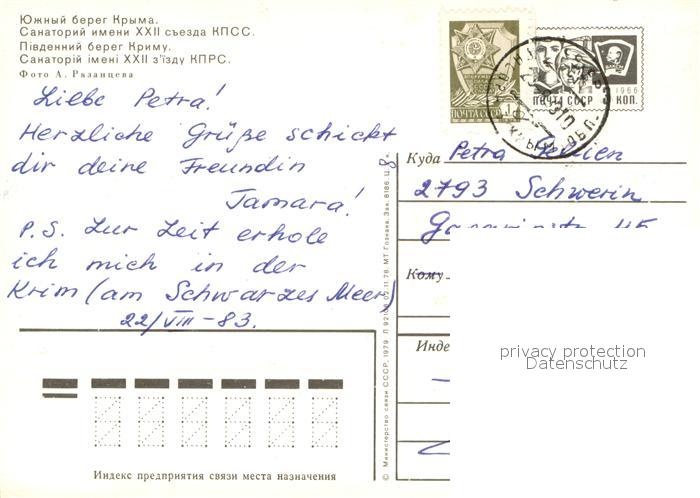 Южный берег Крыма.
Санаторий имени XXII съезда КПСС.
Південний берег Криму.
Санаторій імені XXII з'їзду КПРС.
Фото А. Рязанцева
Liebe Petra!
Herzliche Grüße schickt
dir deine Freundin
Tamara!
P.S. Zur Zeit erhole
ich mich in der
Krim (am Schwarzes Meer)
22/VIII-83.
Индекс предприятия связи места назначения
© Министерство связи СССР, 1979
МТ Гознака. Зак. 8186. Ц.
ПОЧТА СССР 1К
1966
ПОЧТА СССР КОП.
Куда Petra
2793 Schwerin
45
Кому
Инде
privacy protection
Datenschutz